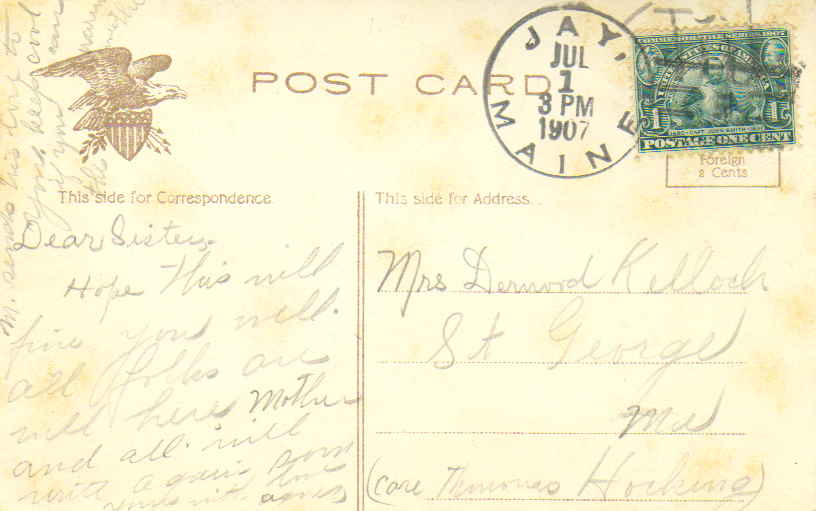 POST CARD
JAY,
MAINE
JUL
1
3 PM
1907
1 1
POSTAGE ONE CENT
Foreign
2 Cents
This side for Correspondence
This side for Address.
Dear Sister.
Hope this will
fine you well.
all folks are
well here Mother
and all. will
write again soon
yours with love
Agnes
M. sends his love to
you, keep cool
if you can
this warm
weather
Mrs Derwood Kelloch
St George
Me
(Care Thomas Hocking)